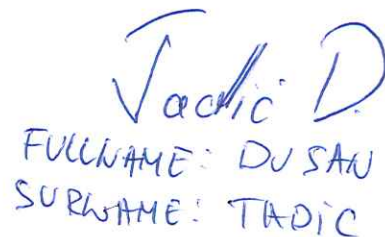 Tadić D.
FULLNAME: DUSAN
SURNAME: TADIC